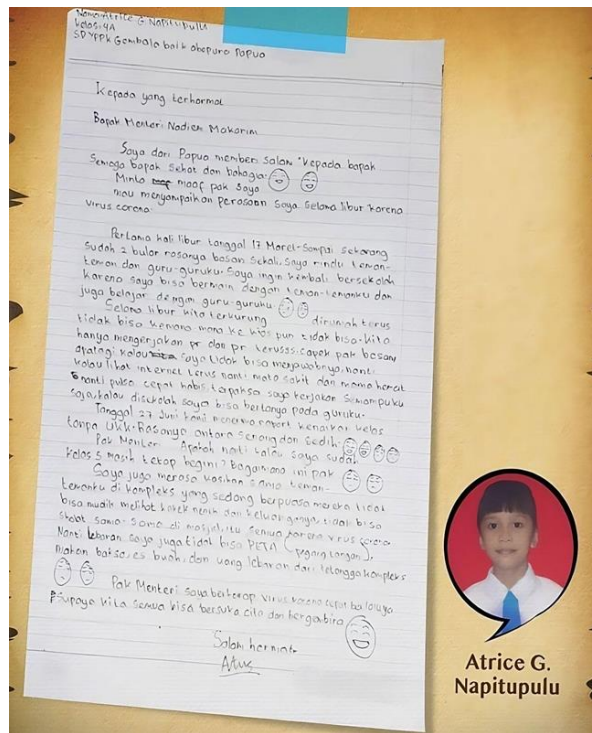 Nama: Atrice G Napitupulu
Kelas: 4A
SD YPPK Gembala baik abepura Papua
Kepada yang terhormat
Bapak Menteri Nadiem Makarim
Saya dari Papua memberi salam kepada bapak
Semoga bapak Sehat dan bahagia.
Minta maaf pak saya
mau menyampaikan perasaan saya selama libur karena
virus corona.
Pertama kali libur tanggal 17 Maret-Sampai Sekarang
sudah 2 bulan rasanya bosan sekali. Saya rindu teman-
teman dan guru-guruku. Saya ingin kembali bersekolah
karena saya bisa bermain dengan teman-temanku dan
juga belajar dengan guru-guruku.
Selama libur kita terkurung dirumah terus
tidak bisa kemana mana ke kios pun tidak bisa. Kita
hanya mengerjakan pr dan pr terusss. capek pak bosan
apalagi kalau saya tidak bisa menjawabnya. nanti
kalau lihat internet terus nanti mata sakit dan mama hemat
nanti pulsa cepat habis terpaksa saya kerjakan semampuku
saja, kalau disekolah saya bisa bertanya pada guruku.
Tanggal 27 Juni kami menerima raport kenaikan kelas
tanpa UKK. Rasanya antara senang dan sedih.
Pak Menteri Apakah nanti kalau saya sudah
kelas 5 masih tetap begini? Bagaimana ini pak
Saya juga merasa kasihan sama teman-
temanku di kompleks yang sedang berpuasa mereka tidak
bisa mudik melihat kakek nenek dan keluarganya, tidak bisa
sholat sama-sama di masjid. itu semua karena virus corona
Nanti lebaran saya juga tidak bisa PETA (pegang tangan),
makan bakso, es buah, dan uang lebaran dari tetangga kompleks
Pak Menteri saya berharap virus corona cepat berlalu ya
supaya kita semua bisa bersuka cita dan bergembira
Salam hormat
Atrice G.
Napitupulu